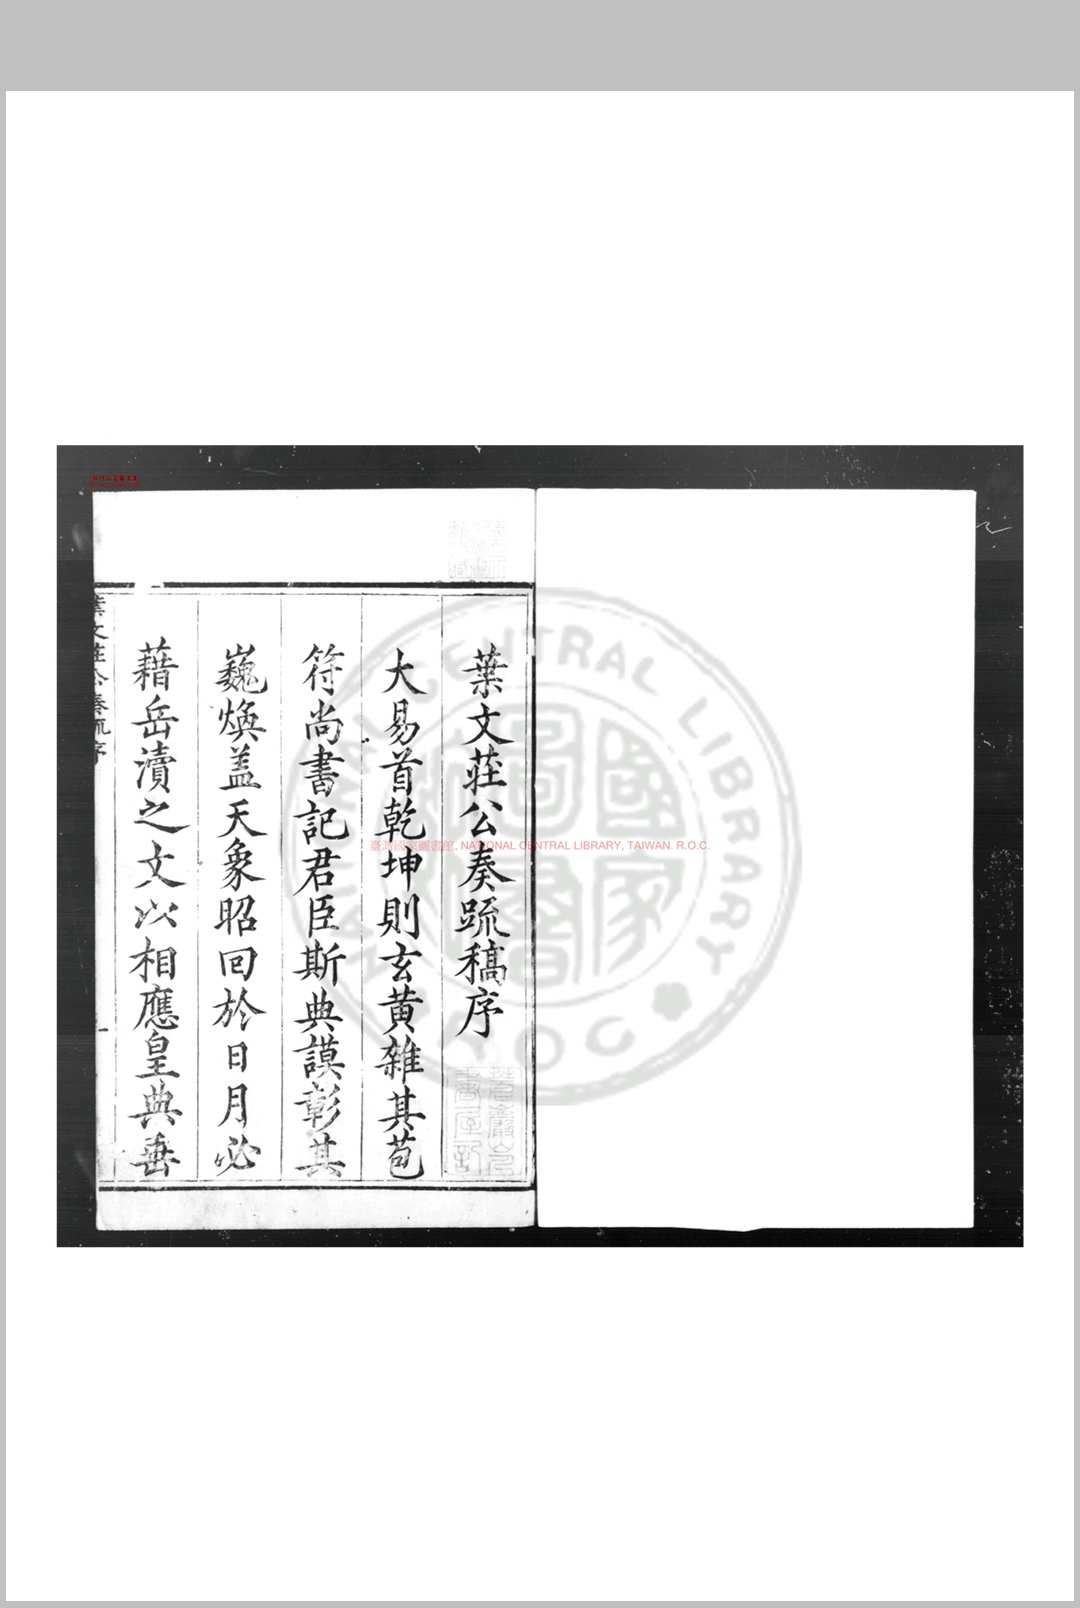 葉文莊公奏疏稿序
大易首乾坤則玄黃雜其苞
符尚書記君臣斯典謨彰其
巍煥盖天象昭回於日月必
藉岳瀆之文以相應皇典垂
葉文莊公奏疏序
一
臺灣國家圖書館, NATIONAL CENTRAL LIBRARY, TAIWAN. R.O.C.
國家圖書館
NATIONAL CENTRAL LIBRARY